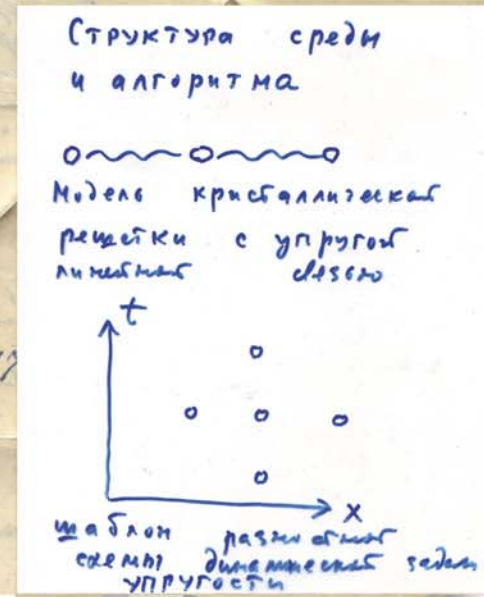 Структура среды
и алгоритма
Модель кристаллической
решетки с упругой
линейной связью
t
x
шаблон разностной
схемы динамической задачи
упругости